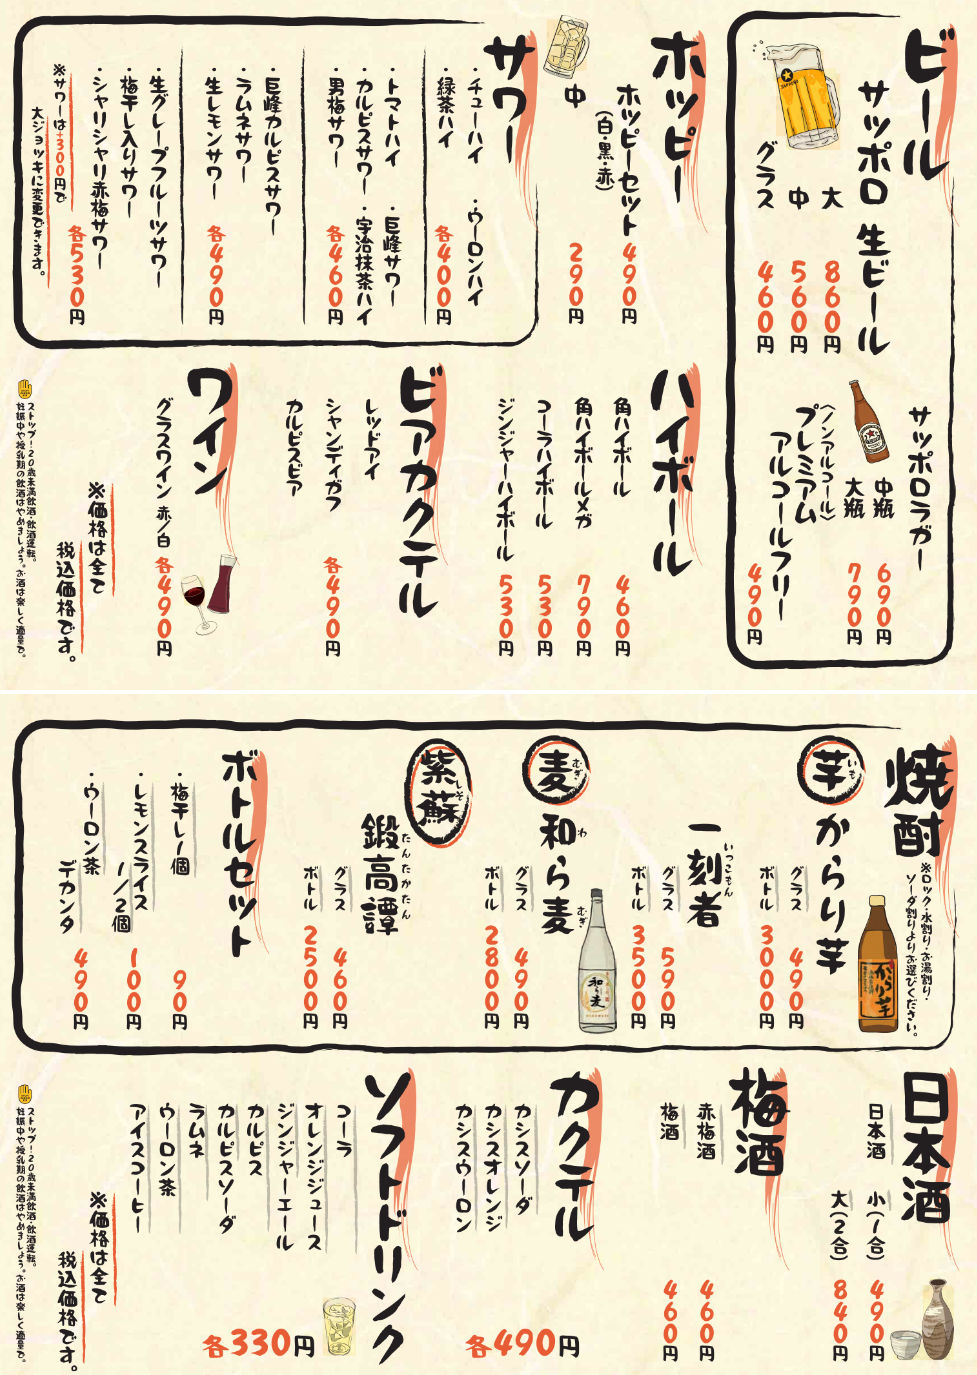 ビール
サッポロ 生ビール
大 860円
中 560円
グラス 460円
サッポロラガー
中瓶 690円
大瓶 790円
(ノンアルコール)
プレミアム
アルコールフリー
490円
ホッピー
ホッピーセット 490円
(白・黒・赤)
中 290円
サワー
・チューハイ ・ウーロンハイ
・緑茶ハイ
各400円
・トマトハイ ・巨峰サワー
・カルピスサワー ・宇治抹茶ハイ
・男梅サワー
各460円
・巨峰カルピスサワー
・ラムネサワー
・生レモンサワー
各490円
・生グレープフルーツサワー
・梅干し入りサワー
・シャリシャリ赤梅サワー
各530円
※サワーは+300円で
大ジョッキに変更できます。
ハイボール
角ハイボール 460円
角ハイボールメガ 790円
コーラハイボール 530円
ジンジャーハイボール 530円
ビアカクテル
レッドアイ
シャンディガフ
カルピスビア
各490円
ワイン
グラスワイン 赤/白 各490円
※価格は全て
税込価格です。
ストップ!20歳未満飲酒・飲酒運転。
妊娠中や授乳期の飲酒はやめましょう。お酒は楽しく適量で。
焼酎
※ロック・水割り・お湯割り・
ソーダ割りよりお選びください。
芋 いも
からり芋
グラス 490円
ボトル 3000円
一刻者 いっこもん
グラス 590円
ボトル 3500円
麦 むぎ
和ら麦 わ むぎ
グラス 490円
ボトル 2800円
紫蘇 しそ
鍛高譚 たんたかたん
グラス 460円
ボトル 2500円
ボトルセット
・梅干し1個 90円
・レモンスライス
1/2個 100円
・ウーロン茶
デカンタ 490円
からり芋
和ら麦
日本酒
日本酒 小(1合) 490円
大(2合) 840円
梅酒
赤梅酒 460円
梅酒 460円
カクテル
カシスソーダ
カシスオレンジ
カシスウーロン
各490円
ソフトドリンク
コーラ
オレンジジュース
ジンジャーエール
カルピス
カルピスソーダ
ラムネ
ウーロン茶
アイスコーヒー
各330円
※価格は全て
税込価格です。
ストップ!20歳未満飲酒・飲酒運転。
妊娠中や授乳期の飲酒はやめましょう。お酒は楽しく適量で。